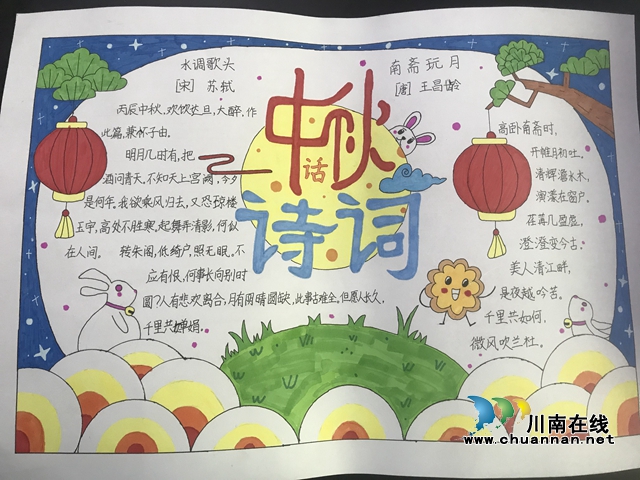 水调歌头
[宋] 苏轼
丙辰中秋,欢饮达旦,大醉,作
此篇,兼怀子由。
明月几时有,把
酒问青天,不知天上宫阙,今夕
是何年。我欲乘风归去,又恐琼楼
玉宇,高处不胜寒,起舞弄清影,何似
在人间。 转朱阁,低绮户,照无眠。不
应有恨,何事长向别时
圆?人有悲欢离合,月有阴晴圆缺,此事古难全,但愿人长久,
千里共婵娟
中秋
话
诗词
南斋玩月
[唐] 王昌龄
高卧南斋时,
开帷月初吐。
清辉澹水木,
演漾在窗户。
荏苒几盈虚,
澄澄变今古。
美人清江畔,
是夜越吟苦。
千里共如何,
微风吹兰杜。
川南在线
www.chuannan.net